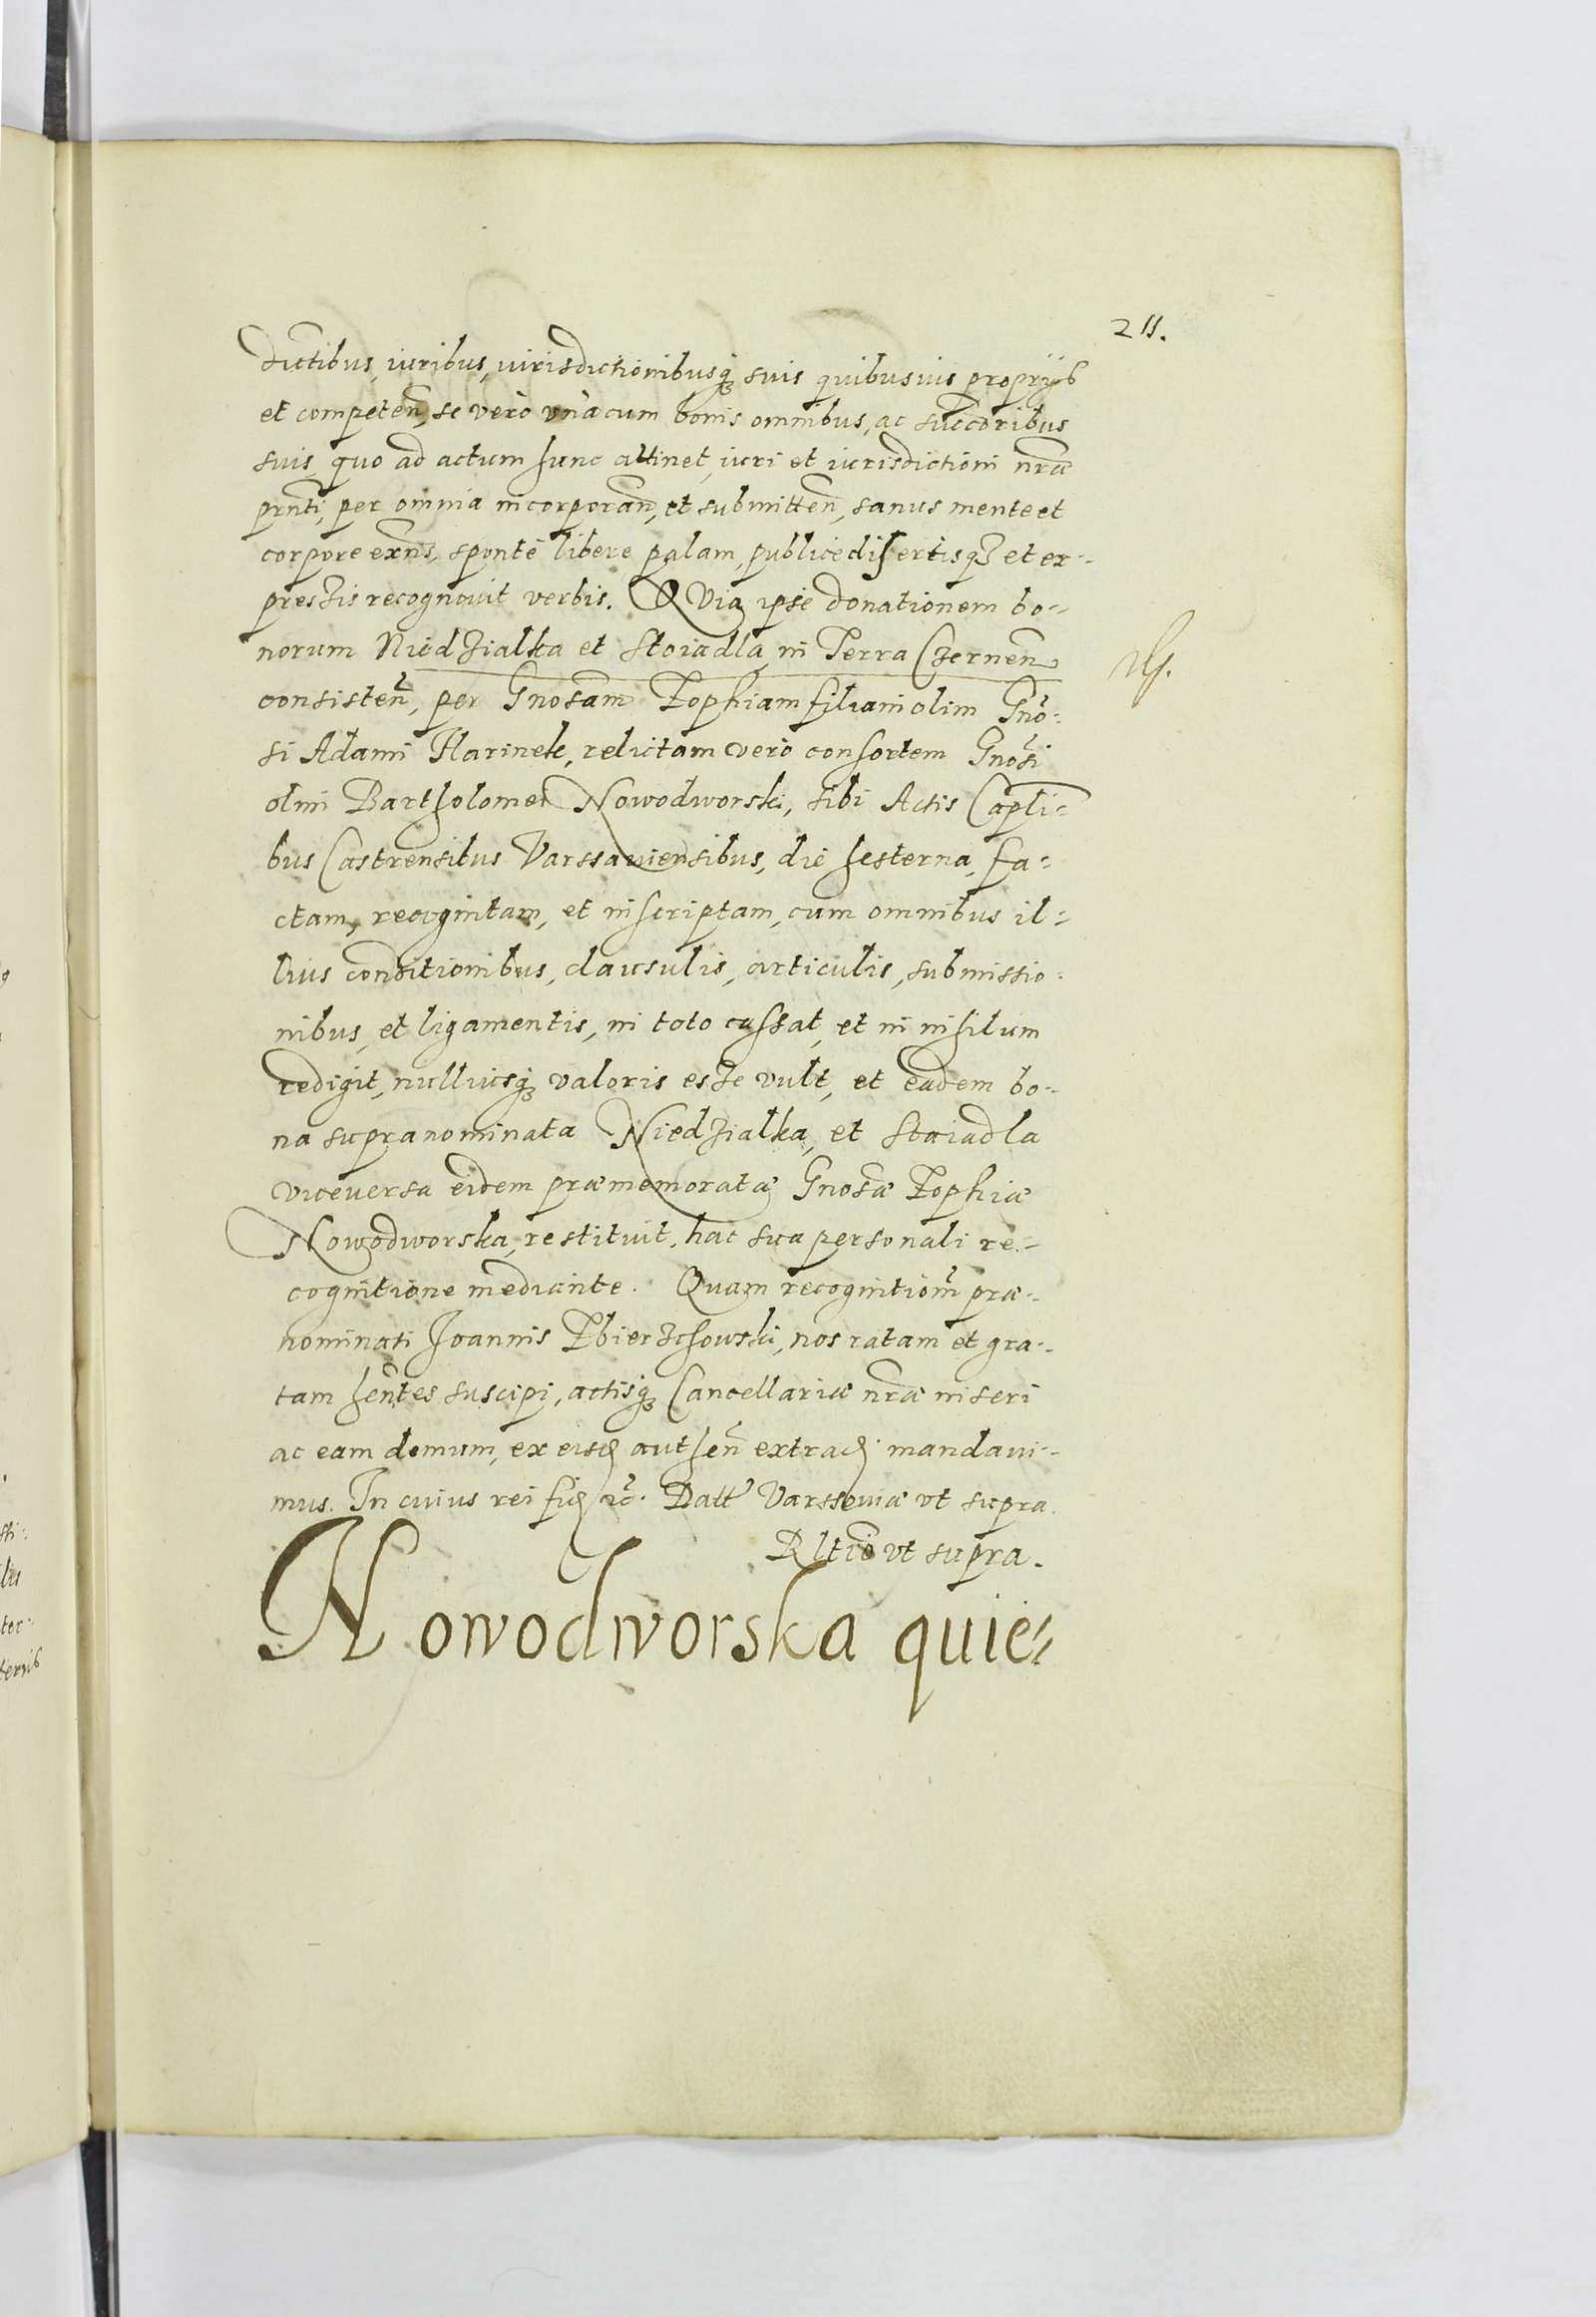 211.
dictibus, iuribus, iurisdictionibusq; suis quibusuis proprijs
et competen̄, se verò vnà cum bonis omnibus, ac succōribus
suis, quo ad actum hunc attinet, iuri et iurisdictioni nr̄æ
prn̄ti, per omnia incorporan̄, et submitten̄, sanus mente et
corpore exn̄s, sponte libere palam, publice disertisq; et ex-
pressis recognouit verbis. Quia ipse donationem bo-
norum Niedzialka et Stoiadla, in Terra Czernen̄
consisten̄, per Gnosam Zophiam filiam olim Gn̄o-
si Adami Harinek, relictam verò consortem Gnosi
olim Bartholomei Nowodworski, sibi Actis Capli-
bus Castrensibus Varssauiensibus, die hesterna, fa-
ctam, recognitam, et inscriptam, cum omnibus il-
lius conditionibus, clausulis, articulis, submissio-
nibus, et ligamentis, in toto cassat, et in nihilum
redigit, nulliusq; valoris esse vult, et eadem bo-
na supranominata Niedzialka, et Stoiadla
viceuersa eidem præmemoratæ Gnosæ Zophiæ
Nowodworska, restituit, hac sua personali re-
cognitione mediante. Quam recognition̄ præ-
nominati Joannis Zbierzchowski, nos ratam et gra-
tam hn̄tes suscipi, actisq; Cancellariæ nr̄æ inseri
ac eam demum, ex eisd authen̄ extradi mandaui-
mus. In cuius rei fid ꝛc̄. Datt Varssouiæ vt supra.
Rltio vt supra.
Nowodworska quie-